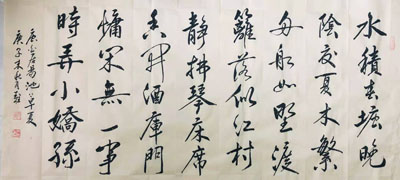 水積春塘晚
陰交夏木繁
舟船如野渡
籬落似江村
靜拂琴床席
香開酒庫門
慵閑無一事
時弄小嬌孫
居易池上早夏
庚子